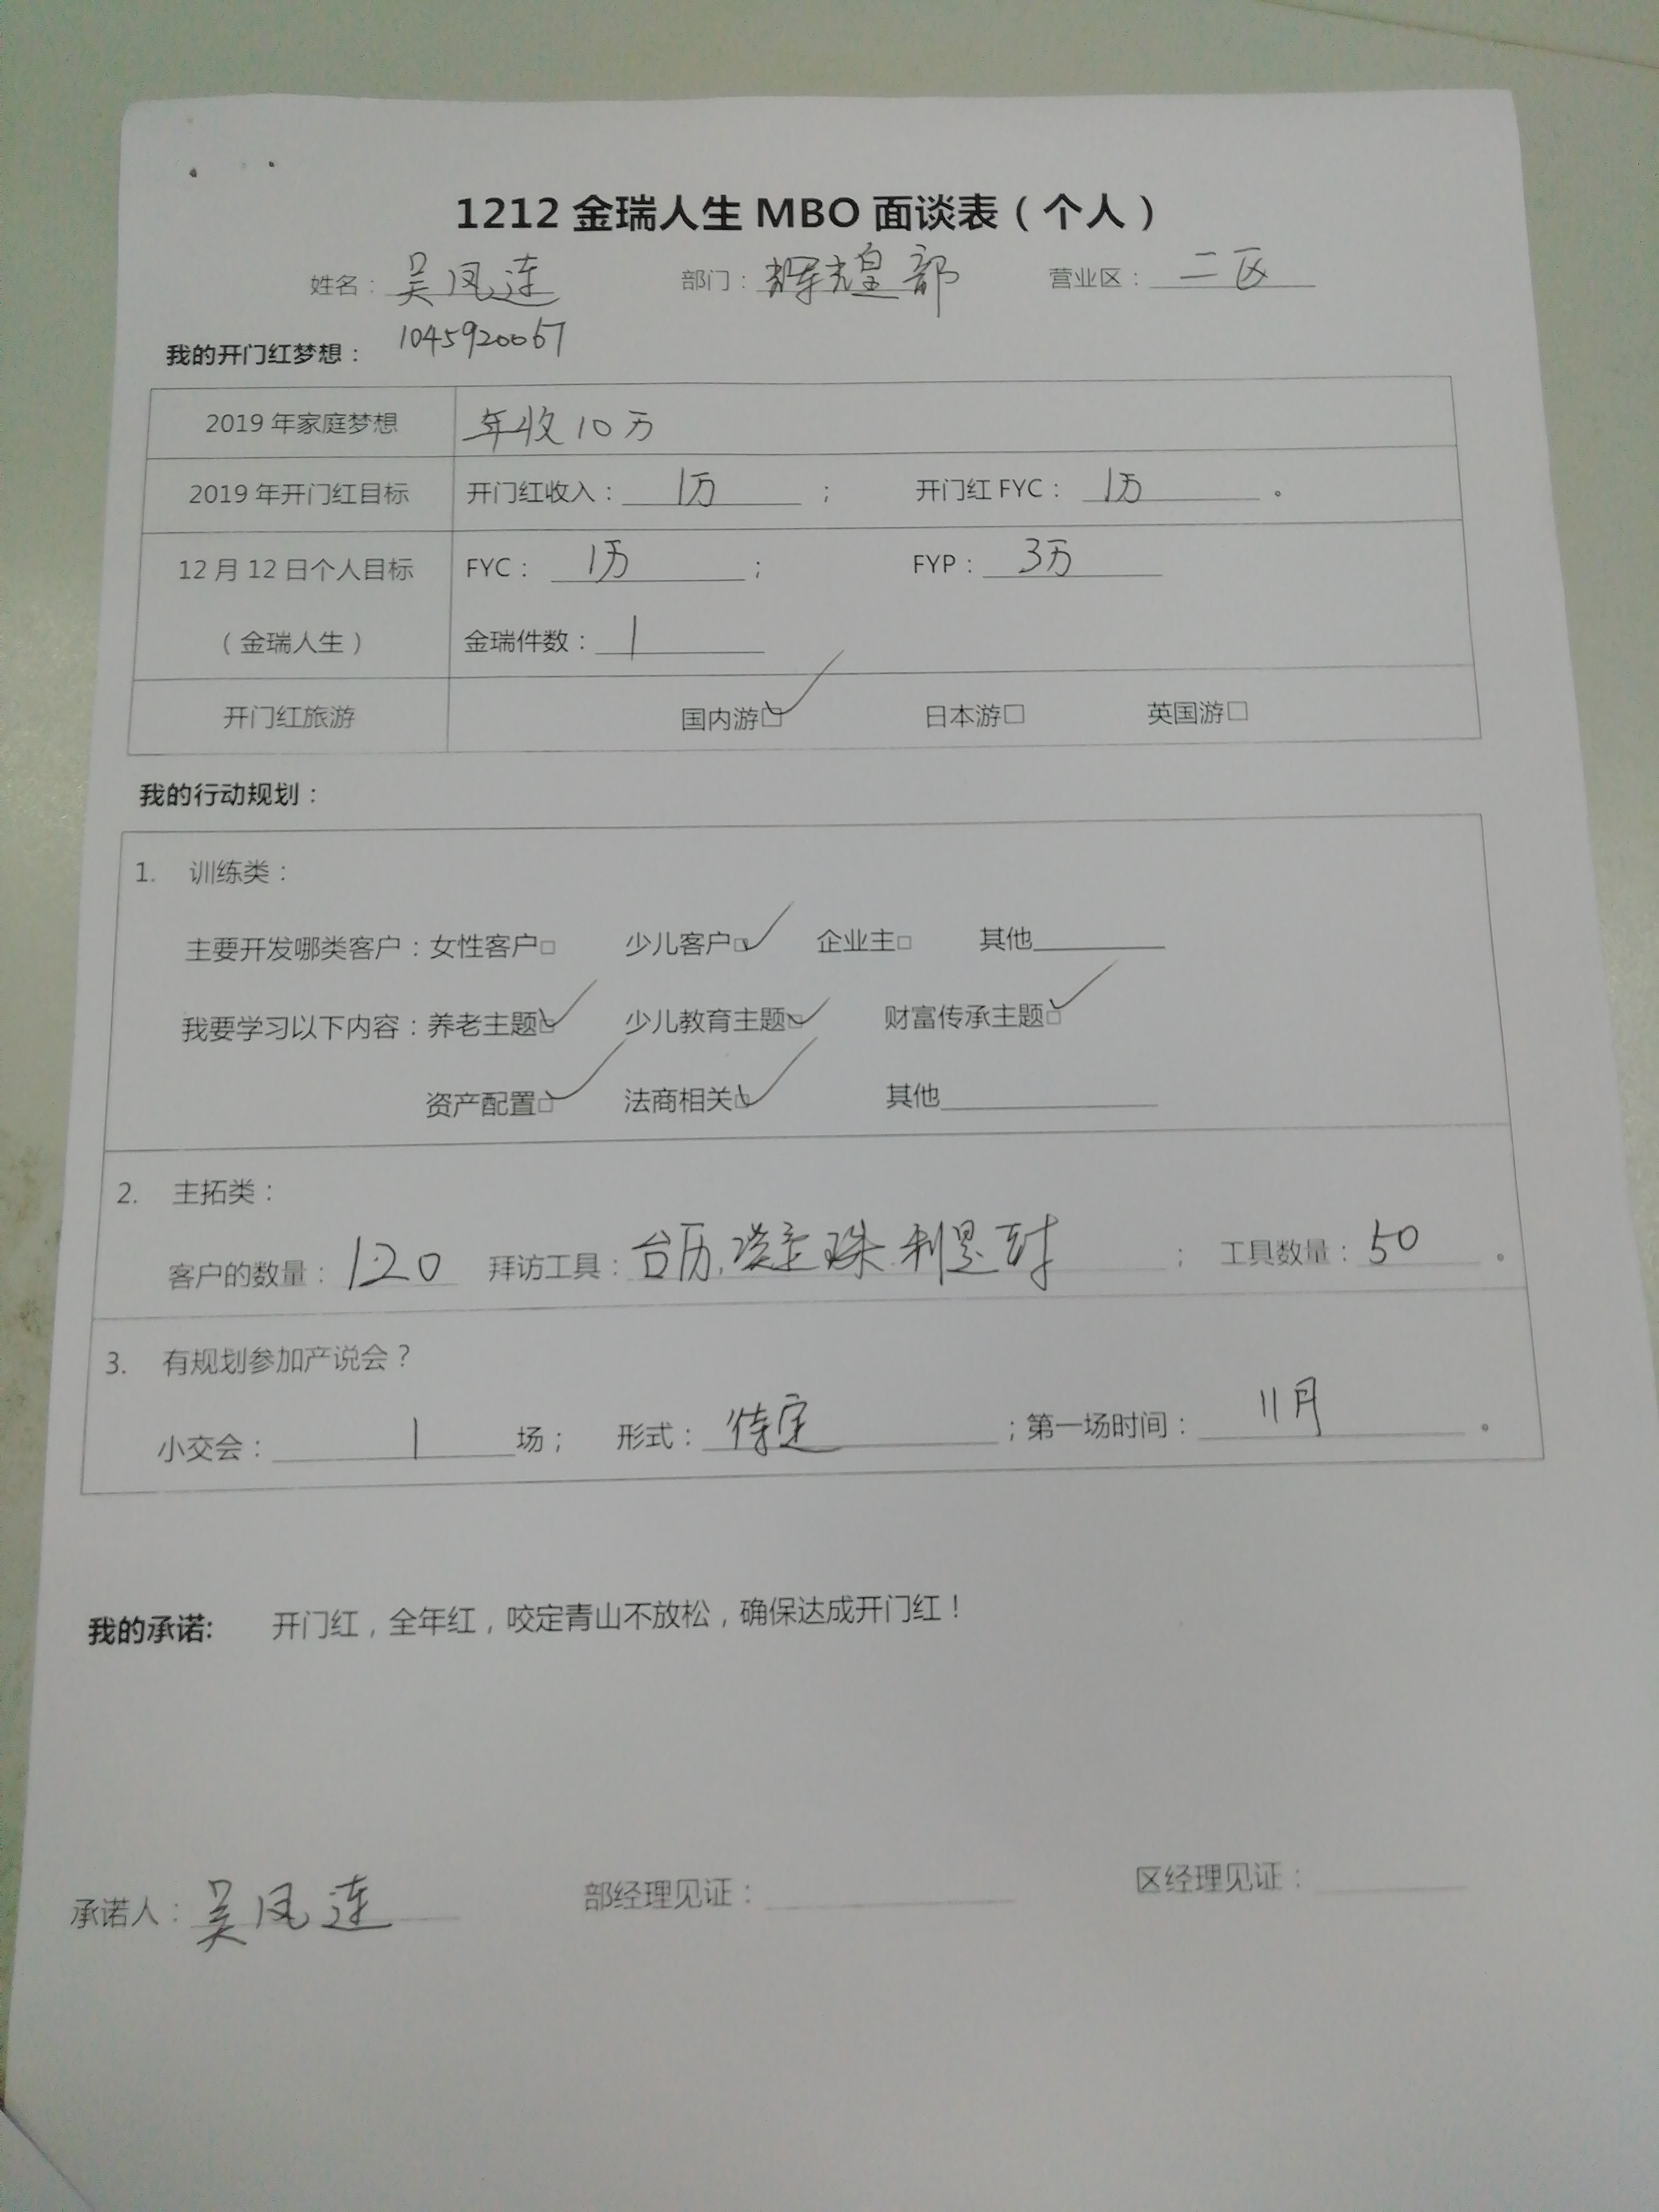 1212金瑞人生MBO面谈表（个人）
姓名：吴凤连 部门：辉煌部 营业区：二区
1045920067
我的开门红梦想：
2019年家庭梦想 年收10万
2019年开门红目标 开门红收入：1万； 开门红FYC：1万。
12月12日个人目标 FYC：1万； FYP：3万
（金瑞人生） 金瑞件数：1
开门红旅游 国内游☑ 日本游□ 英国游□
我的行动规划：
1. 训练类：
主要开发哪类客户：女性客户□ 少儿客户☑ 企业主□ 其他
我要学习以下内容：养老主题☑ 少儿教育主题☑ 财富传承主题☑
资产配置☑ 法商相关☑ 其他
2. 主拓类：
客户的数量：120 拜访工具：台历, 珠 利是封； 工具数量：50。
3. 有规划参加产说会？
小交会：1场； 形式：待定；第一场时间：11月。
我的承诺: 开门红，全年红，咬定青山不放松，确保达成开门红！
承诺人：吴凤连 部经理见证： 区经理见证：